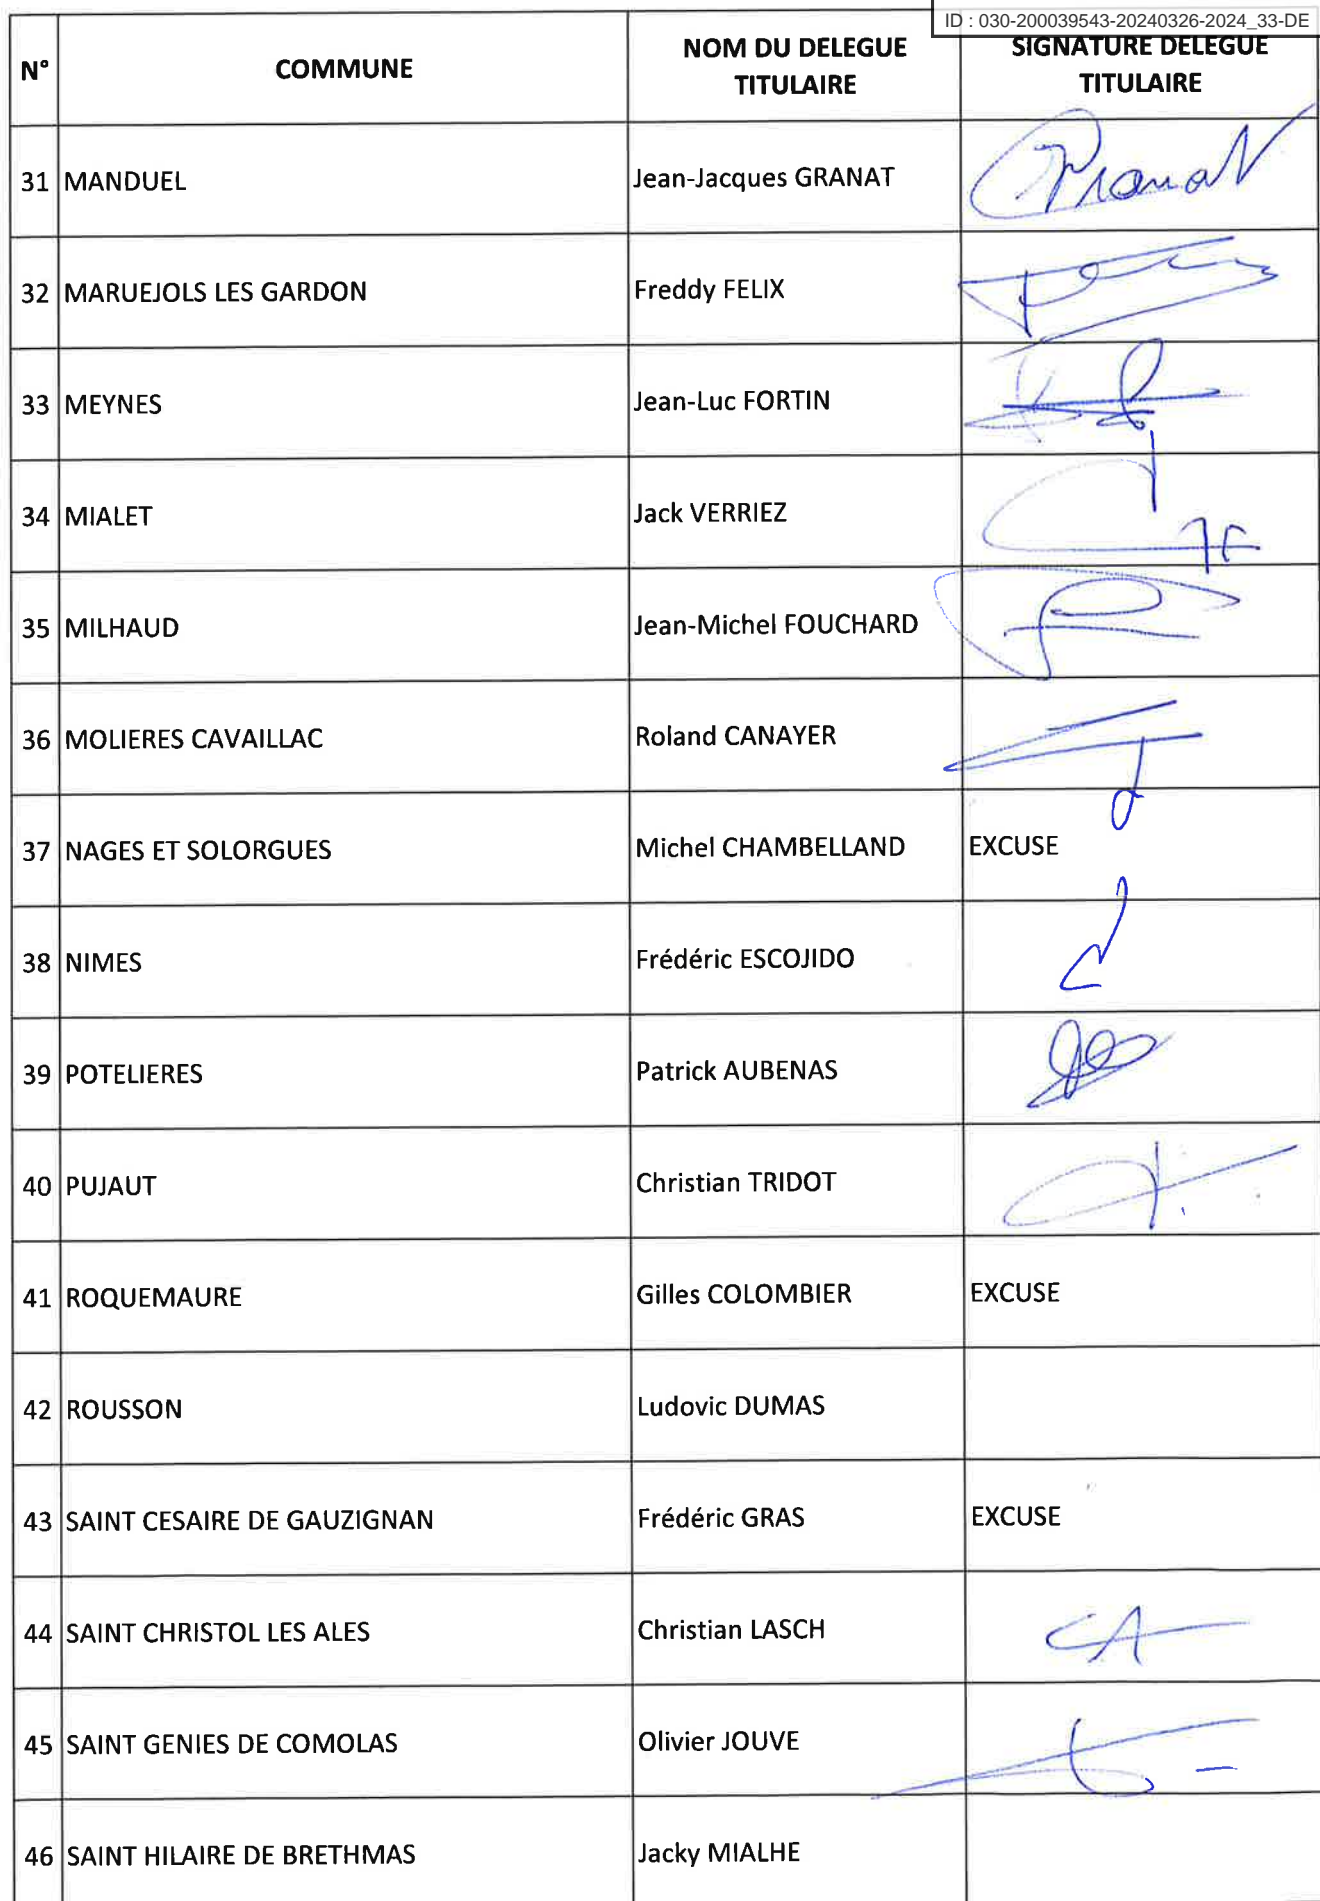 ID : 030-200039543-20240326-2024_33-DE
N° COMMUNE NOM DU DELEGUE TITULAIRE SIGNATURE DELEGUE TITULAIRE
31 MANDUEL Jean-Jacques GRANAT Granat
32 MARUEJOLS LES GARDON Freddy FELIX
33 MEYNES Jean-Luc FORTIN
34 MIALET Jack VERRIEZ
35 MILHAUD Jean-Michel FOUCHARD
36 MOLIERES CAVAILLAC Roland CANAYER
37 NAGES ET SOLORGUES Michel CHAMBELLAND EXCUSE
38 NIMES Frédéric ESCOJIDO
39 POTELIERES Patrick AUBENAS
40 PUJAUT Christian TRIDOT
41 ROQUEMAURE Gilles COLOMBIER EXCUSE
42 ROUSSON Ludovic DUMAS
43 SAINT CESAIRE DE GAUZIGNAN Frédéric GRAS EXCUSE
44 SAINT CHRISTOL LES ALES Christian LASCH
45 SAINT GENIES DE COMOLAS Olivier JOUVE
46 SAINT HILAIRE DE BRETHMAS Jacky MIALHE